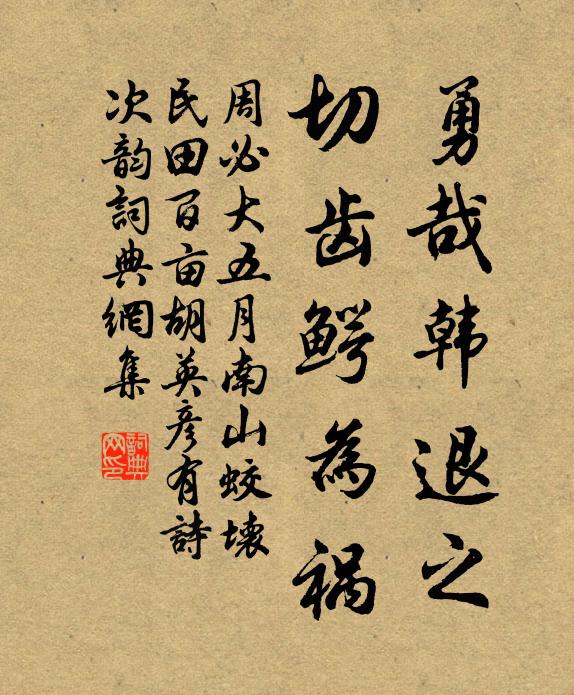 勇哉韩退之
切齿鳄為祸
周必大五月南山蛟壊
民田百亩胡英彦有詩
次韵詞典網集
詞典
网印